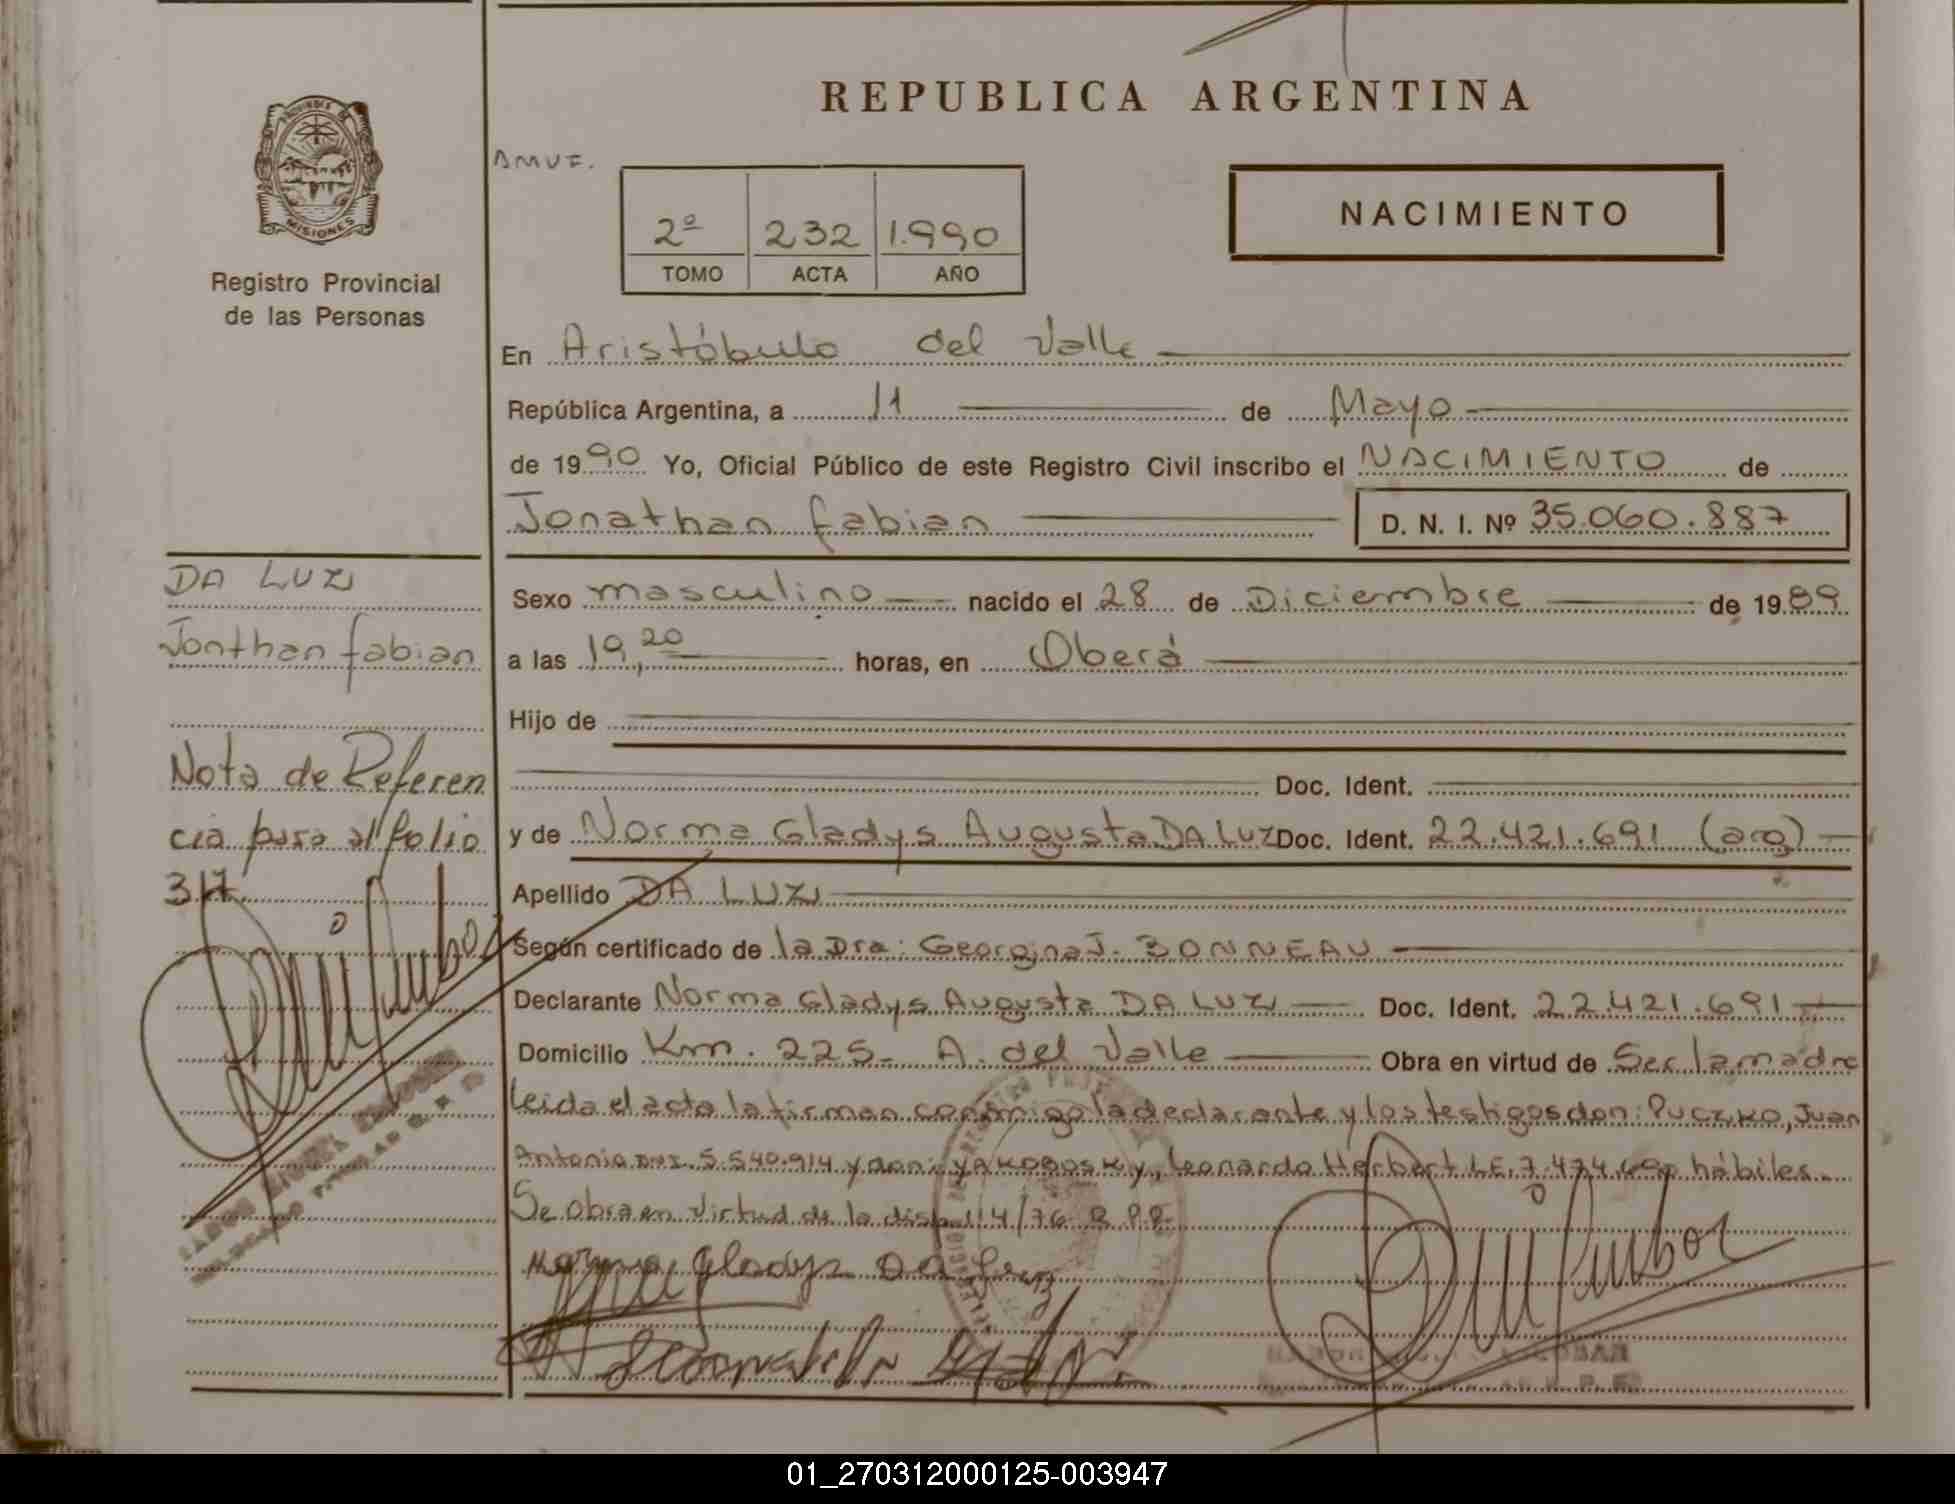 REPUBLICA ARGENTINA
PROVINCIA DE
MISIONES
Registro Provincial
de las Personas
2º 232 1.990
TOMO ACTA AÑO
NACIMIENTO
En Aristóbulo del Valle
República Argentina, a 11 de Mayo
de 1990 Yo, Oficial Público de este Registro Civil inscribo el NACIMIENTO de
Jonathan fabian D. N. I. Nº 35.060.887
DA LUZ
Jonthan fabian
Nota de Referen
cia para al folio
317
Sexo masculino nacido el 28 de Diciembre de 1989
a las 19,20 horas, en Oberá
Hijo de
Doc. Ident.
y de Norma Gladys Augusta DA LUZ Doc. Ident. 22.421.691 (arg)
Apellido DA LUZ
Según certificado de la Dra: Georgina J. BONNEAU
Declarante Norma Gladys Augusta DA LUZ Doc. Ident. 22.421.691
Domicilio Km. 225- A. del Valle Obra en virtud de Ser la madre
leida el acta la firman conmigo la declarante y los testigos don: PUCZKO, Juan
Antonio DNI. 5.540.914 y don: YAKOBOSKY, Leonardo Herbert LE. 7.474. hábiles.
Se obra en virtud de la disp 114/76 R.P.P.
Norma Gladys Da Luz
01_270312000125-003947